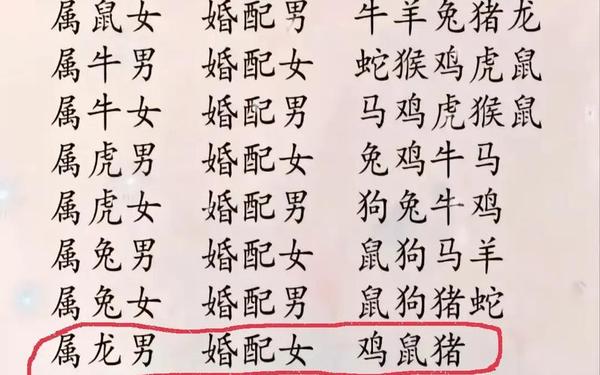 属鼠女 婚配男 牛羊兔猪龙
属牛男 婚配女 蛇猴鸡虎鼠
属牛女 婚配男 马鸡虎猴鼠
属虎男 婚配女 兔鸡牛马
属虎女 婚配男 狗兔牛鸡
属兔男 婚配女 鼠狗马羊
属兔女 婚配男 鼠狗猪蛇
属龙男 婚配女 鸡鼠猪